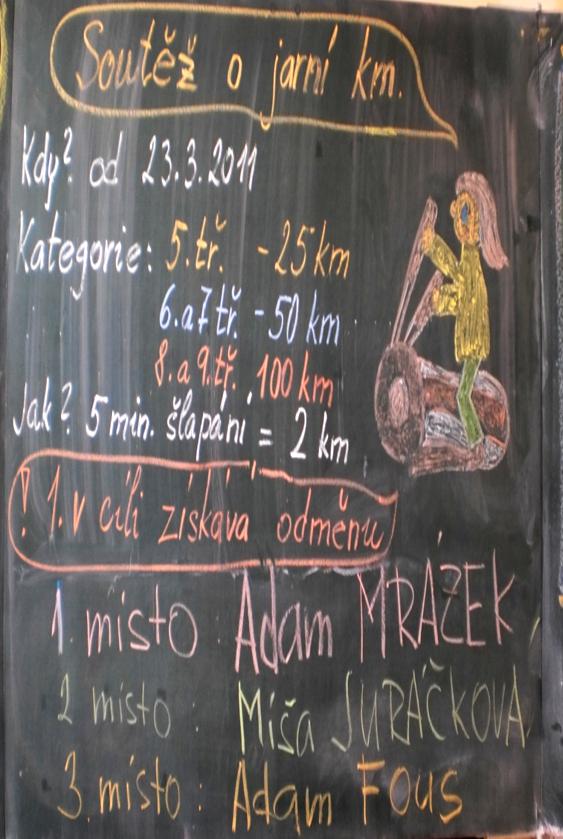 Soutěž o jarní km.
Kdy? od 23.3.2011
Kategorie: 5.tř. - 25 km
6. a 7 tř. - 50 km
8. a 9. tř. 100 km
Jak? 5 min. šlapání = 2 km
! 1. v cíli získává odměnu
1. místo : Adam MRÁZEK
2 místo : Míša JURÁČKOVÁ
3. místo : Adam Fous